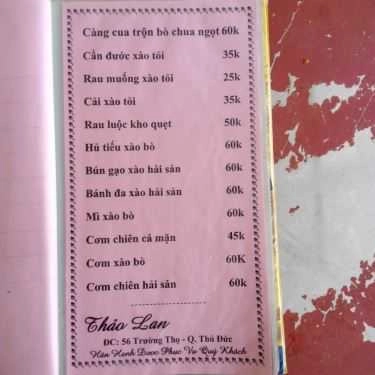 Càng cua trộn bò chua ngọt 60k
Cần đước xào tỏi 35k
Rau muống xào tỏi 25k
Cải xào tỏi 35k
Rau luộc kho quẹt 50k
Hủ tiếu xào bò 60k
Bún gạo xào hải sản 60k
Bánh đa xào hải sản 60k
Mì xào bò 60k
Cơm chiên cá mặn 45k
Cơm xào bò 60K
Cơm chiên hải sản 60k
Thảo Lan
ĐC: 56 Trường Thọ - Q. Thủ Đức
Hân Hạnh Được Phục Vụ Quý Khách